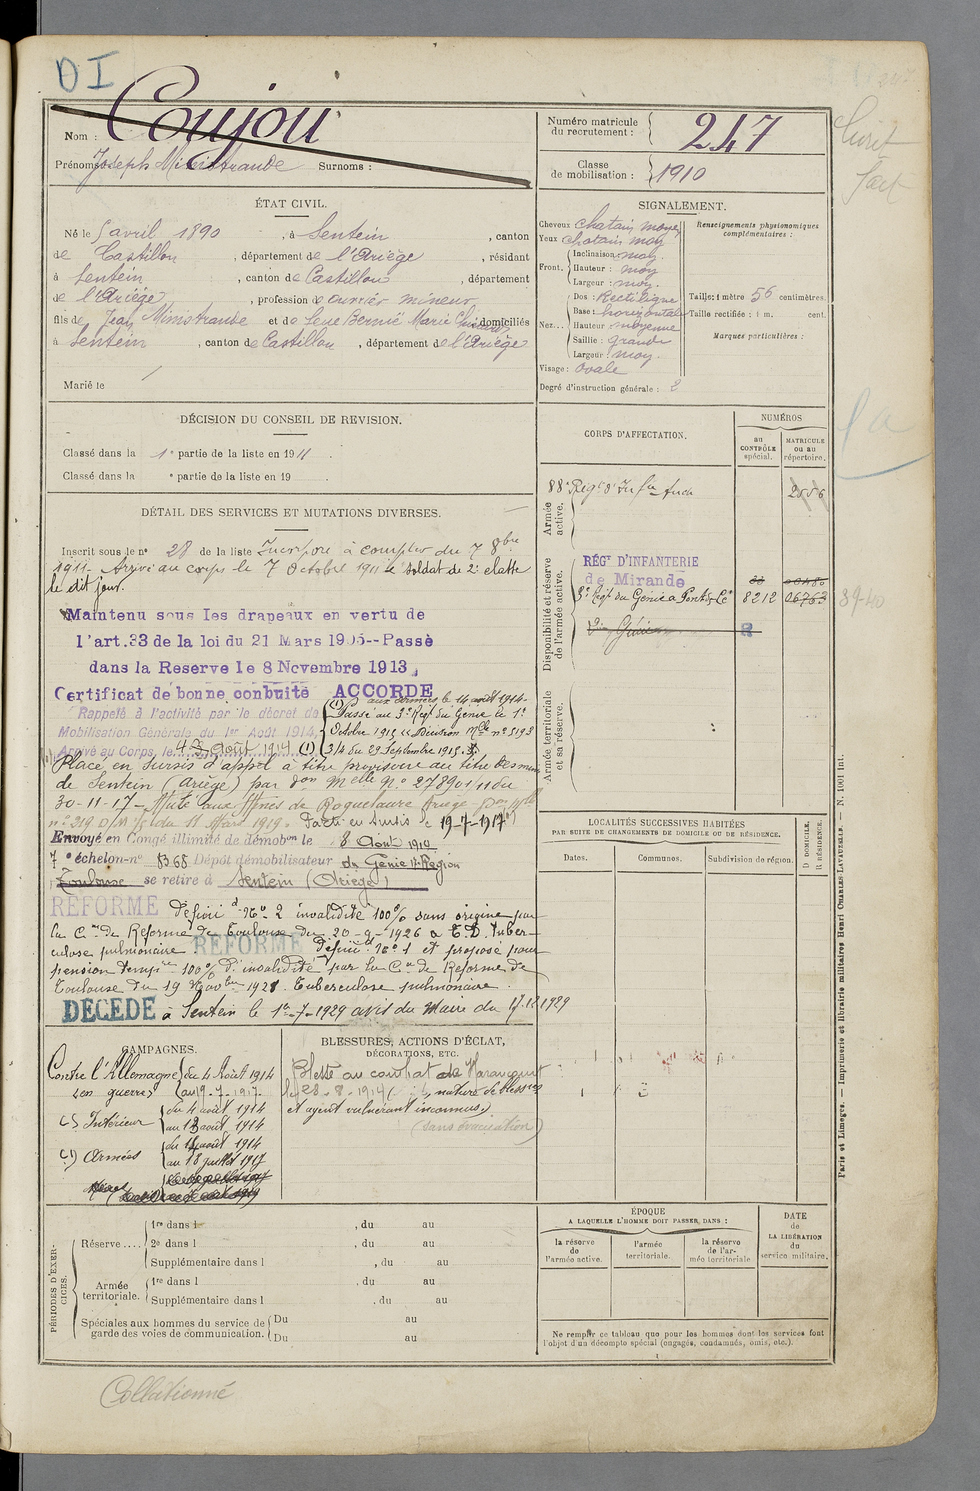 DI
Nom : Coujou
Prénoms : Joseph Ministrande Surnoms :
Numéro matricule du recrutement : 247
Classe de mobilisation : 1910
ÉTAT CIVIL.
Né le 5 avril 1890, à Sentein, canton
de Castillon, département de l'Ariège, résidant
à Sentein, canton de Castillon, département
de l'Ariège, profession de ouvrier mineur
fils de Jean Ministrande et de Marie domiciliés
à Sentein, canton de Castillon, département de l'Ariège
Marié le /
SIGNALEMENT.
Cheveux chatain moyen
Yeux chatain moy
Front. Inclinaison moy.
Hauteur : moy
Largeur : moy.
Nez... Dos : Rectiligne
Base : horizontale
Hauteur : moyenne
Saillie : grande
Largeur : moy.
Visage : Ovale
Degré d'instruction générale : 2
Renseignements physionomiques complémentaires :
Taille : 1 mètre 56 centimètres.
Taille rectifiée : 1 m. cent.
Marques particulières :
DÉCISION DU CONSEIL DE REVISION.
Classé dans la 1e partie de la liste en 1911.
Classé dans la e partie de la liste en 19 .
DÉTAIL DES SERVICES ET MUTATIONS DIVERSES.
Inscrit sous le no 28 de la liste Incorporé à compter du 7 8bre
1911. Arrivé au corps le 7 Octobre 1911 soldat de 2e classe
le dit jour.
Maintenu sous les drapeaux en vertu de
l'art.33 de la loi du 21 Mars 1905--Passé
dans la Reserve le 8 Novembre 1913
Certificat de bonne conduite ACCORDE
Rappelé à l'activité par le décret de
Mobilisation Générale du 1er Août 1914,
Arrivé au Corps, le 4 Août 1914 (1)
(1) aux armées le 14 août 1914.
Passé au 3e Régt du Génie le 1er
Octobre 1915 Décision Mlle no 5193
3/4 du 29 Septembre 1915.
Placé en sursis d'appel à titre provisoire au titre des mines
de Sentein (Ariège) par don Melle No 278901/11 du
30-11-17 - Muté aux Mines de Roquelaure Ariège
no 219 du 11 Mars 1919. Parti en sursis le 19-7-1917
Envoyé en Congé illimité de démobon le 8 Août 1919
7e échelon-no 8368 Dépôt démobilisateur du Génie Région
Toulouse se retire à Sentein (Ariège)
RÉFORMÉ Définid No 2 invalidité 100% sans origine par
la Con de Réforme de Toulouse du 20-9-1926 Tuber-
culose pulmonaire. RÉFORMÉ Définid No 1 et proposé pour
pension tempre 100% d'invalidité par la Con de Réforme de
Toulouse du 19 Novbre 1928. Tuberculose pulmonaire.
DÉCÉDÉ à Sentein le 1er-7-1929 avis du Maire du 17.12.1929
CORPS D'AFFECTATION.
NUMÉROS
au CONTRÔLE spécial.
MATRICULE ou au répertoire.
Armée active.
88e Régt d'Infie Auch
Disponibilité et réserve de l'armée active.
RÉGT D'INFANTERIE
de Mirande
2e Régt du Génie 8212 06763
Génie
Armée territoriale et sa réserve.
LOCALITÉS SUCCESSIVES HABITÉES
PAR SUITE DE CHANGEMENTS DE DOMICILE OU DE RÉSIDENCE.
Dates. Communes. Subdivision de région. D DOMICILE, R RÉSIDENCE.
CAMPAGNES.
Contre l'Allemagne du 4 Août 1914
(en guerre) au 19.7.1917.
C) Intérieur du 4 août 1914
au 13 août 1914
C) Armées du 14 août 1914
au 18 juillet 1917
BLESSURES, ACTIONS D'ÉCLAT,
DÉCORATIONS, ETC.
Blessé au combat de Haraucourt
le 28.8.1914 nature de bless
et agent vulnérant inconnus.
(sans évacuation)
PÉRIODES D'EXERCICES.
Réserve.... 1re dans l , du au
2e dans l , du au
Supplémentaire dans l , du au
Armée territoriale. 1re dans l , du au
Supplémentaire dans l , du au
Spéciales aux hommes du service de garde des voies de communication. Du au
Du au
ÉPOQUE
A LAQUELLE L'HOMME DOIT PASSER, DANS :
la réserve de l'armée active.
l'armée territoriale.
la réserve de l'armée territoriale
DATE de LA LIBÉRATION du service militaire.
Ne remplir ce tableau que pour les hommes dont les services font
l'objet d'un décompte spécial (engagés, condamnés, omis, etc.).
Paris et Limoges. — Imprimerie et librairie militaires Henri CHARLES-LAVAUZELLE. — N. 1001 int.
Collationné